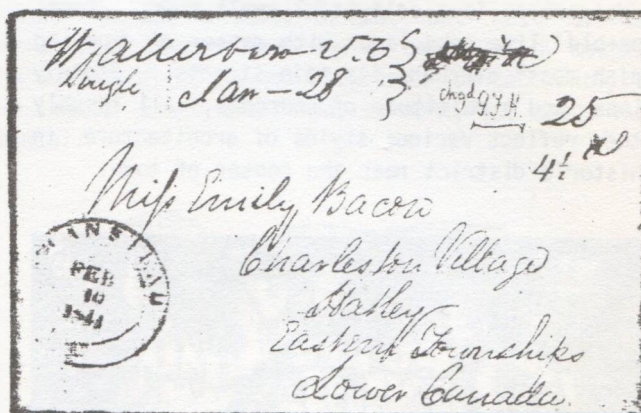 Walterboro S.C.
Single Jan - 28
chgd 25
4½
Miss Emily Bacon
Charleston Village
Hatley
Eastern Townships
Lower Canada
STANSTEAD
FEB
10
1841